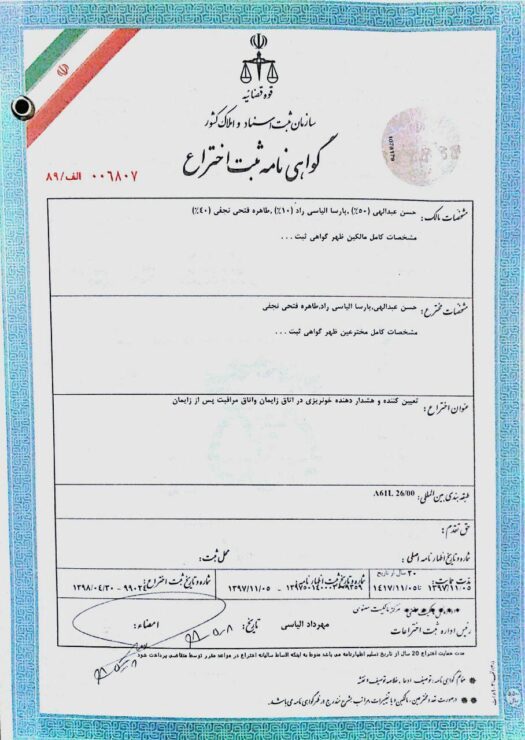 قوه قضائیه
سازمان ثبت اسناد و املاک کشور
گواهی نامه ثبت اختراع
۰۰۶۸۰۷ الف/۸۹
مشخصات مالک: حسن عبدالهی (۵۰٪) ,پارسا الیاسی راد (۱۰٪) ,طاهره فتحی نجفی (۴۰٪)
مشخصات کامل مالکین ظهر گواهی ثبت . . .
مشخصات مخترع: حسن عبدالهی,پارسا الیاسی راد,طاهره فتحی نجفی
مشخصات کامل مخترعین ظهر گواهی ثبت . . .
عنوان اختراع: تعیین کننده و هشدار دهنده خونریزی در اتاق زایمان واتاق مراقبت پس از زایمان
طبقه بندی بین المللی: A61L 26/00
حق تقدم:
شماره و تاریخ اظهارنامه اصلی: محل ثبت:
مدت حمایت: ۲۰ سال از تاریخ ۱۳۹۷/۱۱/۰۵ تا ۱۴۱۷/۱۱/۰۵
شماره و تاریخ ثبت اظهارنامه: ۱۳۹۷/۱۱/۰۵
شماره و تاریخ ثبت اختراع: ۱۳۹۸/۰۴/۳۰
مرکز مالکیت معنوی
رئیس اداره ثبت اختراعات مهرداد الیاسی تاریخ: امضاء:
مدت حمایت اختراع 20 سال از تاریخ تسلیم اظهارنامه می باشد منوط به اینکه اقساط سالیانه اختراع در مواعد مقرر توسط متقاضی پرداخت شود
ضمائم گواهی نامه: توصیف، ادعا، خلاصه توصیف و نقشه
درصورت تعدد مخترعین، مالکین و یا تغییرات مراتب بشرح مندرج در ظهر گواهی نامه می باشد.